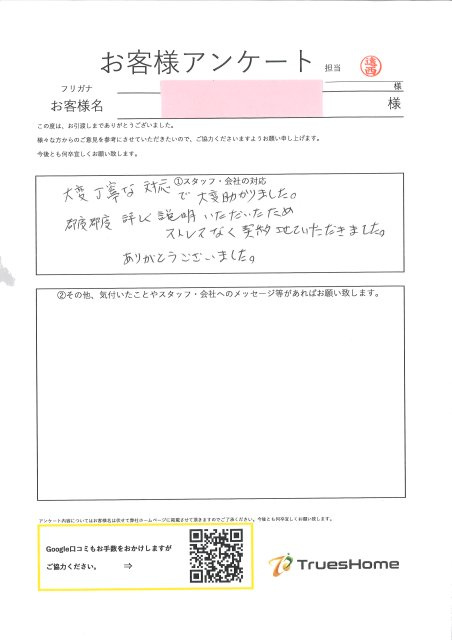 お客様アンケート 担当 遠西
フリガナ 様
お客様名 様
この度は、お引渡しまでありがとうございました。
様々な方からのご意見を参考にさせていただきたいので、ご協力くださいますようお願い申し上げます。
今後とも何卒宜しくお願い致します。
①スタッフ・会社の対応
大変丁寧な対応で大変助かりました。
都度都度詳しく説明いただいたため
ストレスなく契約させていただきました。
ありがとうございました。
②その他、気付いたことやスタッフ・会社へのメッセージ等があればお願い致します。
アンケート内容についてはお客様名は伏せて弊社ホームページに掲載させて頂きますのでご了承ください。今後とも何卒宜しくお願い致します。
Google口コミもお手数をおかけしますが
ご協力ください。 ⇒
TruesHome